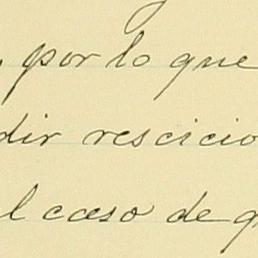 , por lo que
dir rescicio
l caso de q